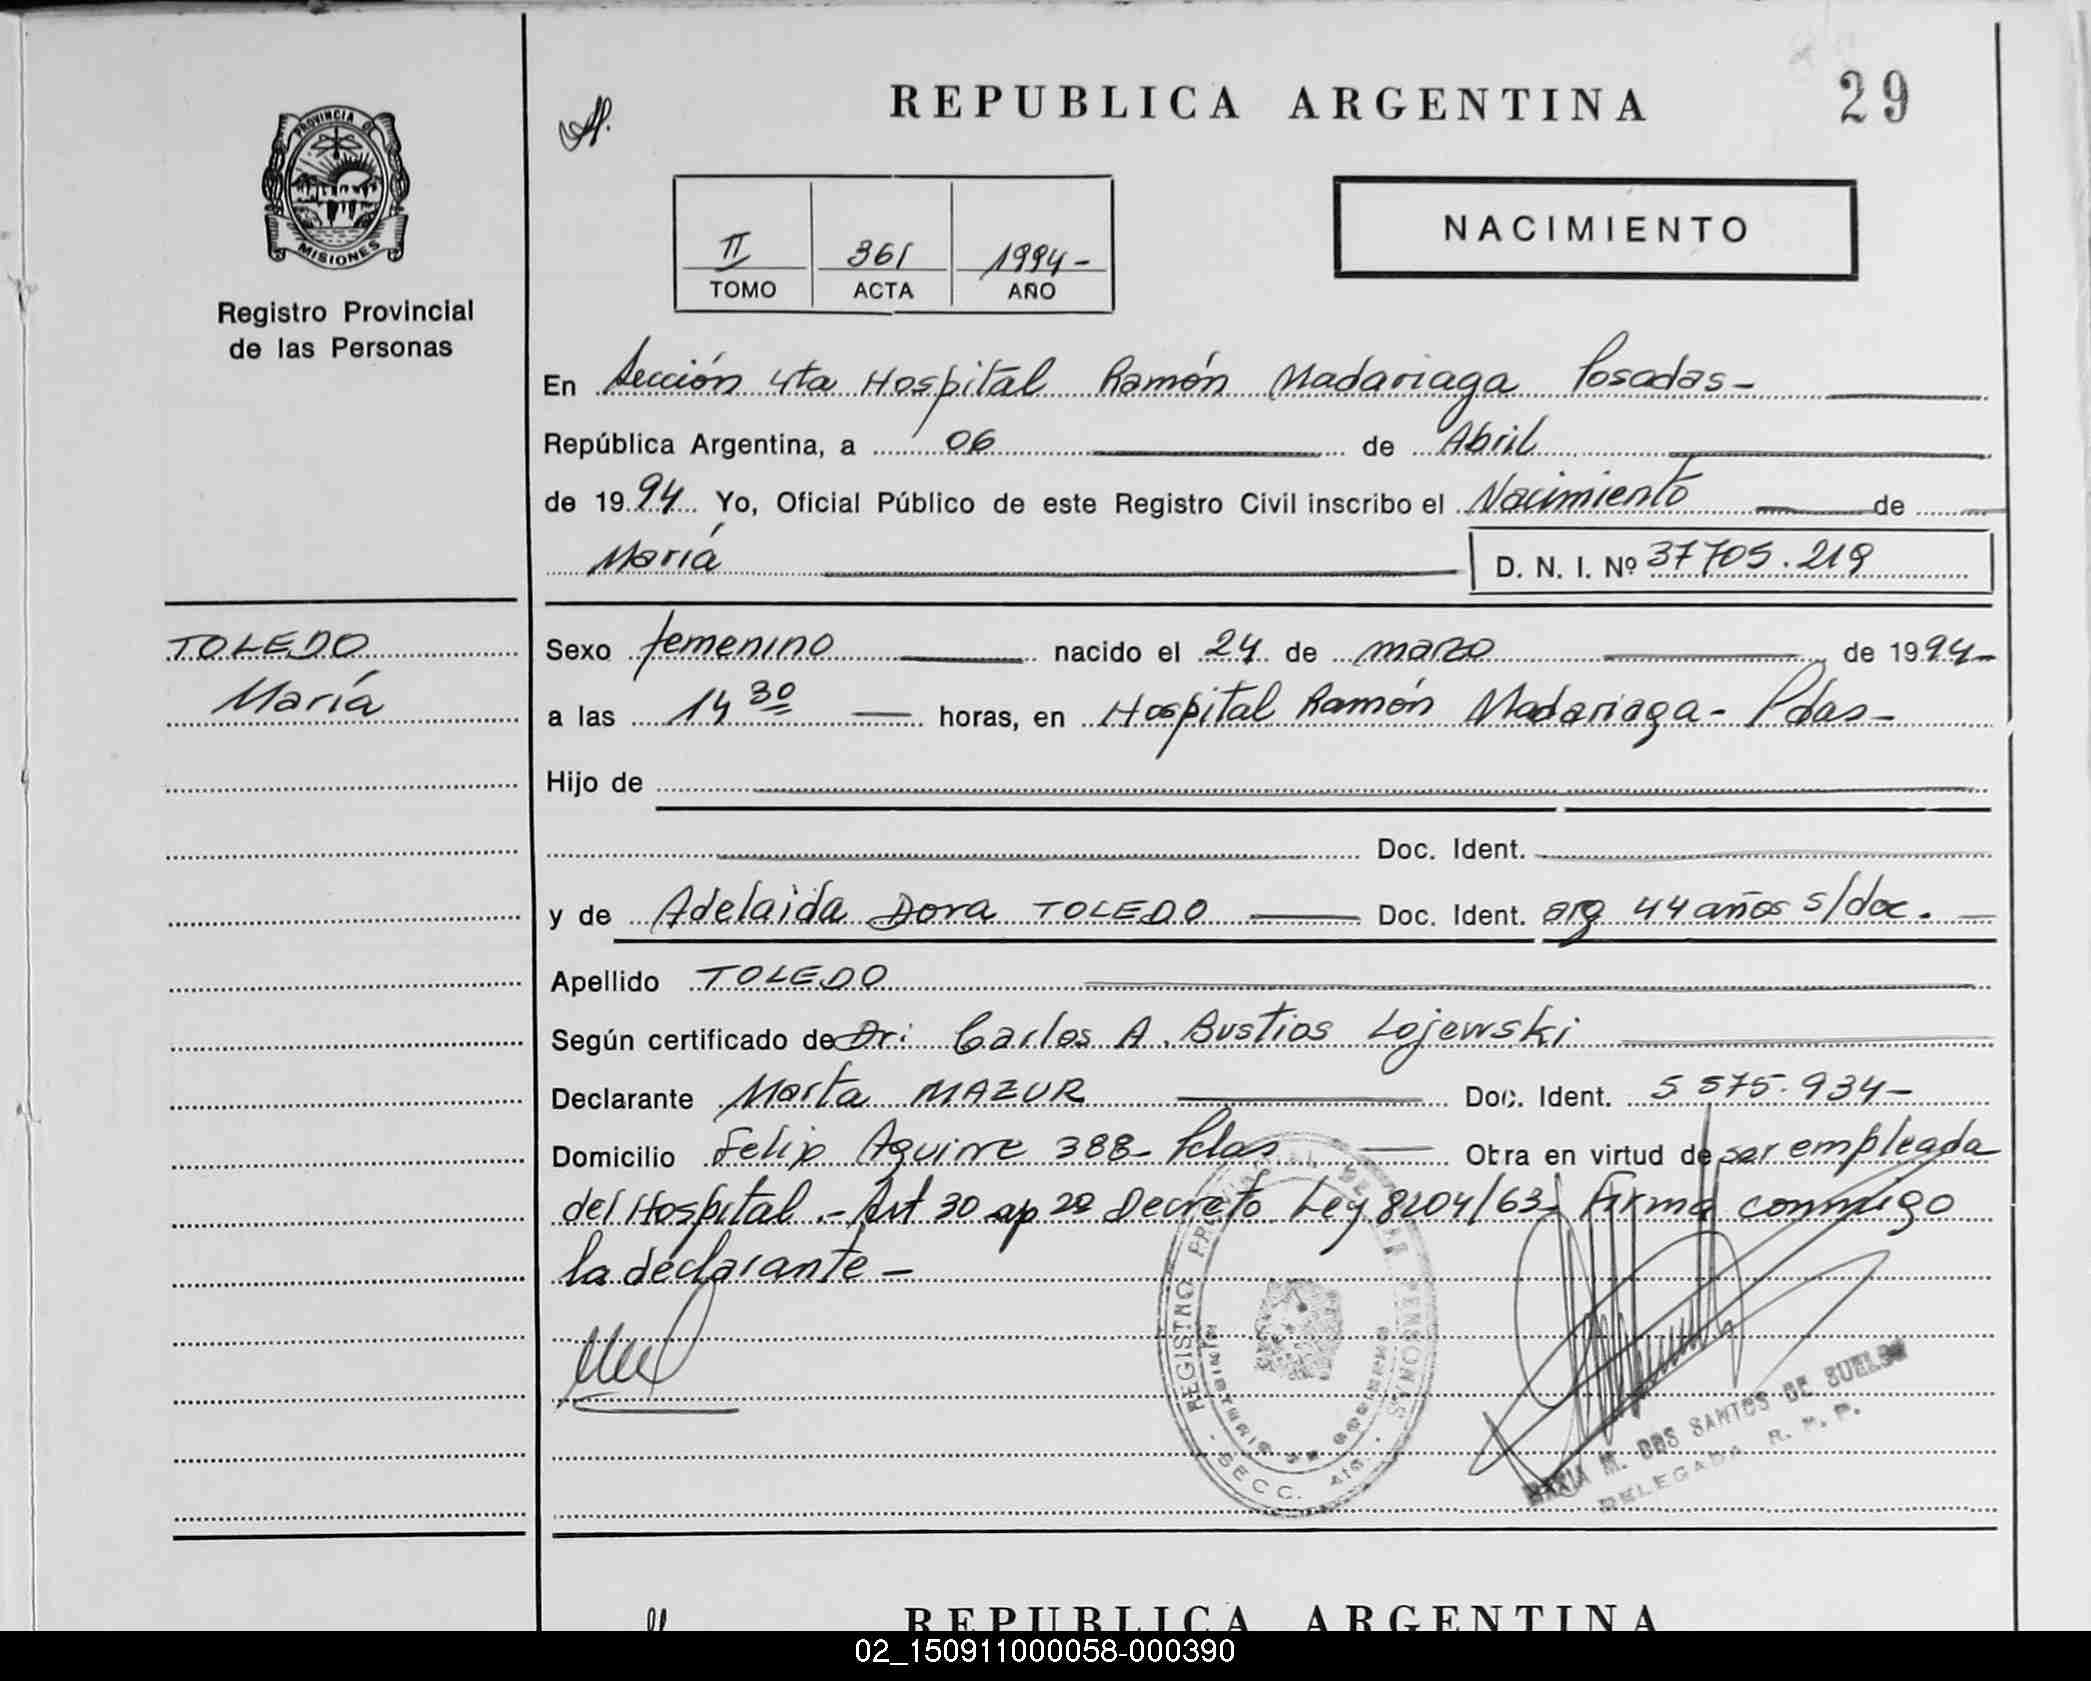 REPUBLICA ARGENTINA
29
PROVINCIA DE
MISIONES
Registro Provincial
de las Personas
II 361 1994-
TOMO ACTA AÑO
NACIMIENTO
En Sección 4ta Hospital Ramón Madariaga Posadas-
República Argentina, a 06 de Abril
de 1994 Yo, Oficial Público de este Registro Civil inscribo el Nacimiento de
María D. N. I. Nº 37705.219
TOLEDO
María
Sexo femenino nacido el 24 de marzo de 1994-
a las 14 30 horas, en Hospital Ramón Madariaga- Pdas-
Hijo de
Doc. Ident.
y de Adelaida Dora TOLEDO Doc. Ident. arg 44 años s/doc.
Apellido TOLEDO
Según certificado de Dr: Carlos A. Bustios Lojewski
Declarante Marta MAZUR Doc. Ident. 5 575.934-
Domicilio Felip Aguirre 388- Pdas Obra en virtud de ser empleada
del Hospital.- Art 30 ap 2º Decreto Ley 8204/63- Firma conmigo
la declarante-
REGISTRO PROVINCIAL DE LAS PERSONAS
MINISTERIO DE GOBIERNO
- SECC. 4ta. -
MARIA M. DOS SANTOS DE
DELEGADA R. P. P.
REPUBLICA ARGENTINA
02_150911000058-000390